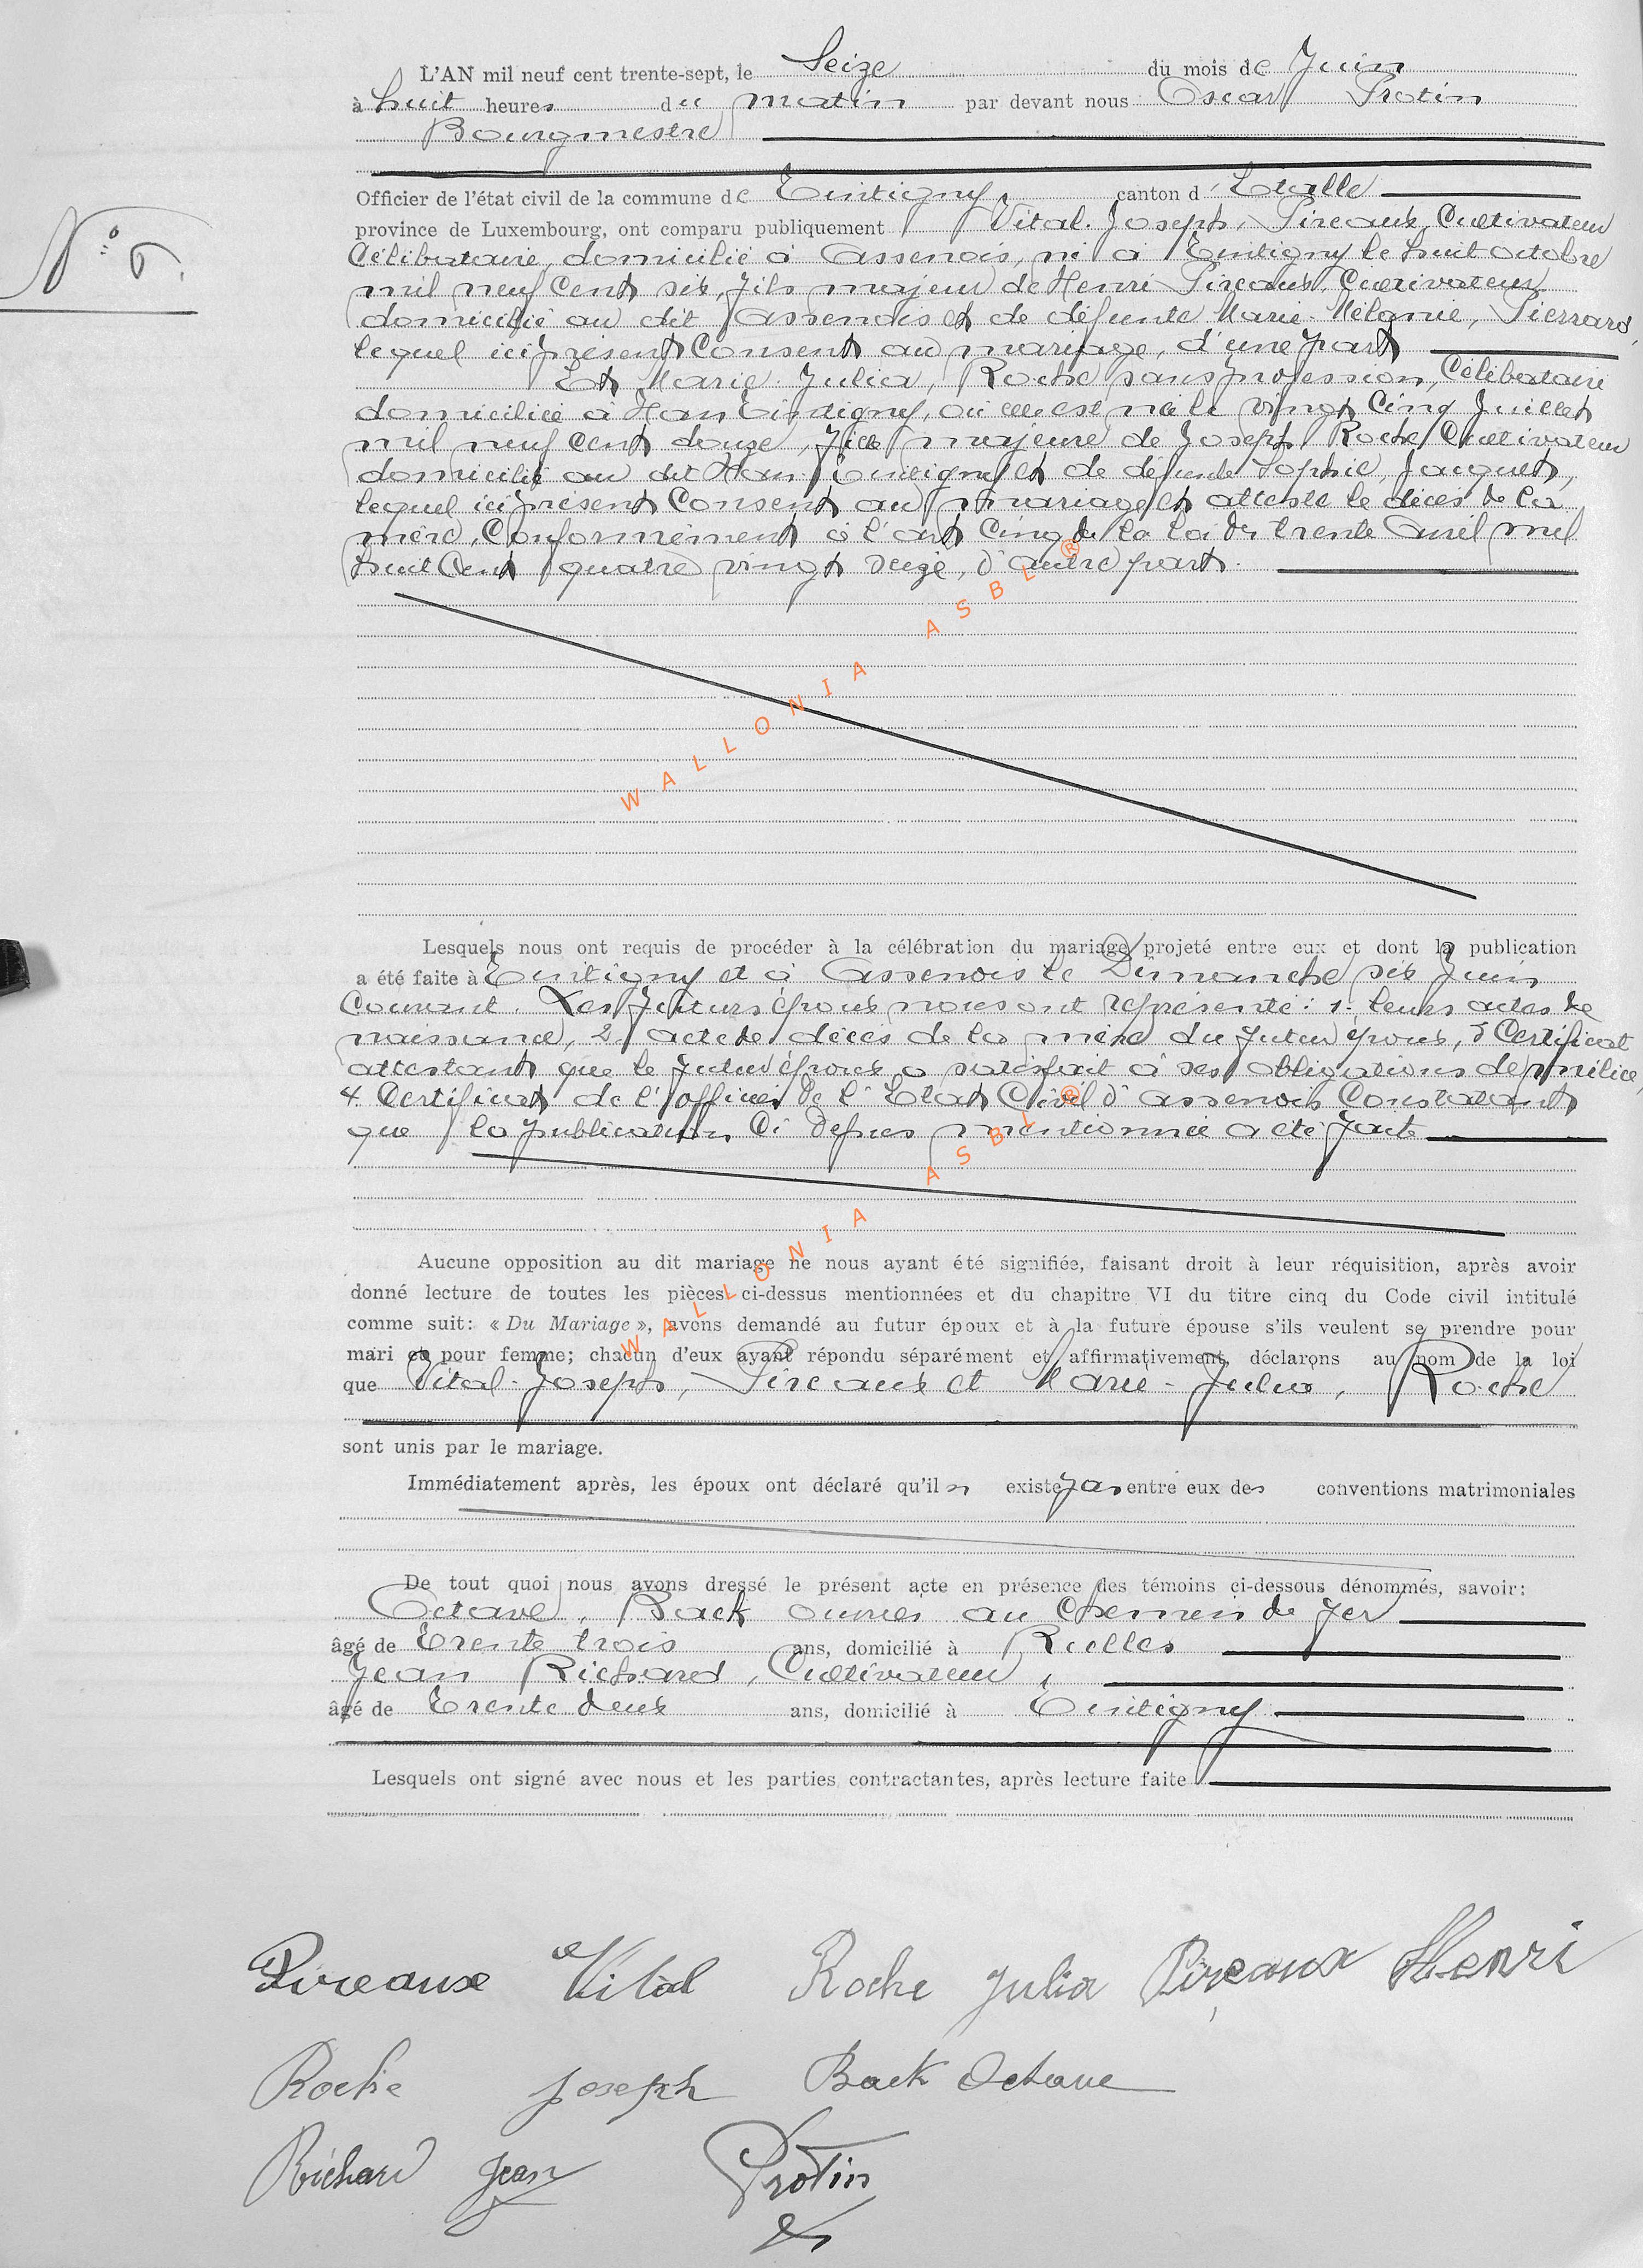 L'AN mil neuf cent trente-sept, le Seize du mois de Juin
à huit heures du matin par devant nous Oscar Protin
Bourgmestre
Officier de l'état civil de la commune de Tintigny, canton d'Etalle
N° 6.
province de Luxembourg, ont comparu publiquement Vital-Joseph, Pireaux, Cultivateur
Célibataire, domicilié à Assenois, né à Tintigny le huit octobre
mil neuf cent six, fils majeur de Henri Pireaux, Cultivateur
domicilié au dit Assenois et de défunte Marie-Mélanie, Pierrard,
lequel ici présent Consent au mariage, d'une part
Et Marie-Julia, Roche sans profession, Célibataire
domiciliée à Han Tintigny, où elle est née le vingt Cinq Juillet
mil neuf cent douze, fille majeure de Joseph Roche Cultivateur
domicilié au dit Han-Tintigny et de défunte Sophie, Jacquet,
lequel ici présent Consent au mariage et atteste le décès de la
mère, Conformément à l'art Cinq de la loi du trente Avril mil
huit Cent quatre vingt seize, d'autre part.
Lesquels nous ont requis de procéder à la célébration du mariage projeté entre eux et dont la publication
a été faite à Tintigny et à Assenois le Dimanche six Juin
Courant. Les futurs époux nous ont représenté: 1. leurs actes de
naissance, 2. acte de décès de la mère du futur époux, 3 Certificat
attestant que le futur époux a satisfait à ses obligations de milice,
4 Certificat de l'officier de l'Etat Civil d'Assenois Constatant
que la publication Ci dessus mentionnée a été faite
Aucune opposition au dit mariage ne nous ayant été signifiée, faisant droit à leur réquisition, après avoir
donné lecture de toutes les pièces ci-dessus mentionnées et du chapitre VI du titre cinq du Code civil intitulé
comme suit: « Du Mariage », avons demandé au futur époux et à la future épouse s'ils veulent se prendre pour
mari et pour femme; chacun d'eux ayant répondu séparément et affirmativement, déclarons au nom de la loi
que Vital-Joseph, Pireaux et Marie-Julia, Roche
sont unis par le mariage.
Immédiatement après, les époux ont déclaré qu'il n existe pas entre eux des conventions matrimoniales
De tout quoi nous avons dressé le présent acte en présence des témoins ci-dessous dénommés, savoir:
Octave, Back ouvrier au Chemin de fer
âgé de Trente trois ans, domicilié à Rulles
Jean Richard, Cultivateur,
âgé de Trente deux ans, domicilié à Tintigny
Lesquels ont signé avec nous et les parties contractantes, après lecture faite
Pireaux Vital Roche Julia Pireaux Henri
Roche Joseph Back Octave
Richard Jean Protin
WALLONIA ASBL ®
WALLONIA ASBL ®